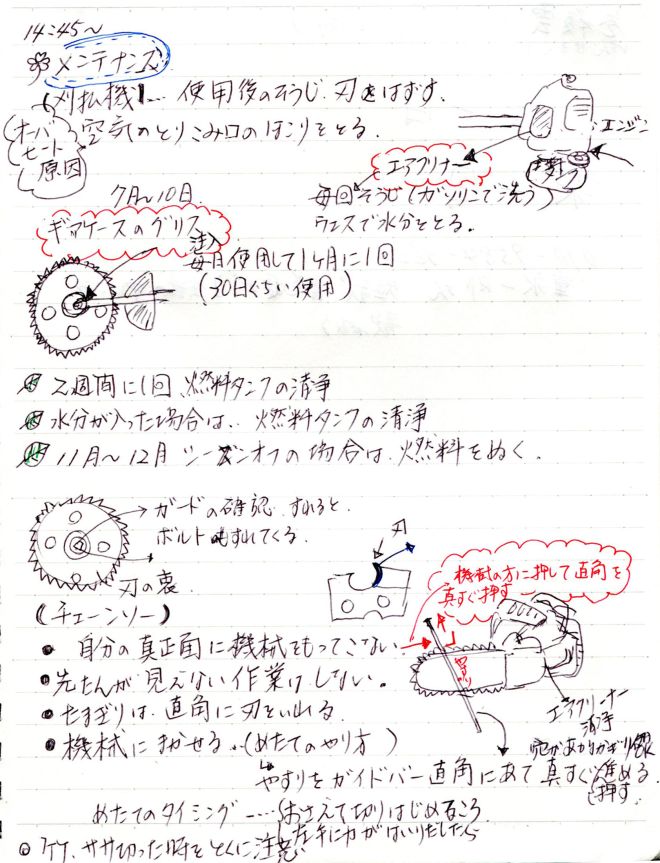 14:45〜
メンテナンス
(刈払機)… 使用後のそうじ、刃をはずす。
オーバーヒート原因
空気のとりこみ口のほこりをとる。
エンジン
エアクリナー
毎回そうじ(ガソリンで洗う)
ウエスで水分をとる。
7月〜10日
ギアケースのグリス
注入
毎日使用して1ヶ月に1回
(30日くらい使用)
2週間に1回、燃料タンクの清浄
水分が入った場合は、燃料タンクの清浄
11月〜12月 シーズンオフの場合は、燃料をぬく。
ガードの確認、すれると
ボルトもすれてくる。
刃の裏
刃
機械の方に押して直角を
真すぐ押す
(チェーンソー)
自分の真正面に機械をもってこない
先たんが見えない作業はしない。
たまぎりは、直角に刃をいれる
機械にまかせる…(めたてのやり方)
エアクリーナー
清浄
やすりをガイドバー直角にあて真すぐ進める
押す
めたてのタイミング……おさえて切りはじめるころ
左手に力がはいりだしたら
竹、ササ切った時をとくに注意